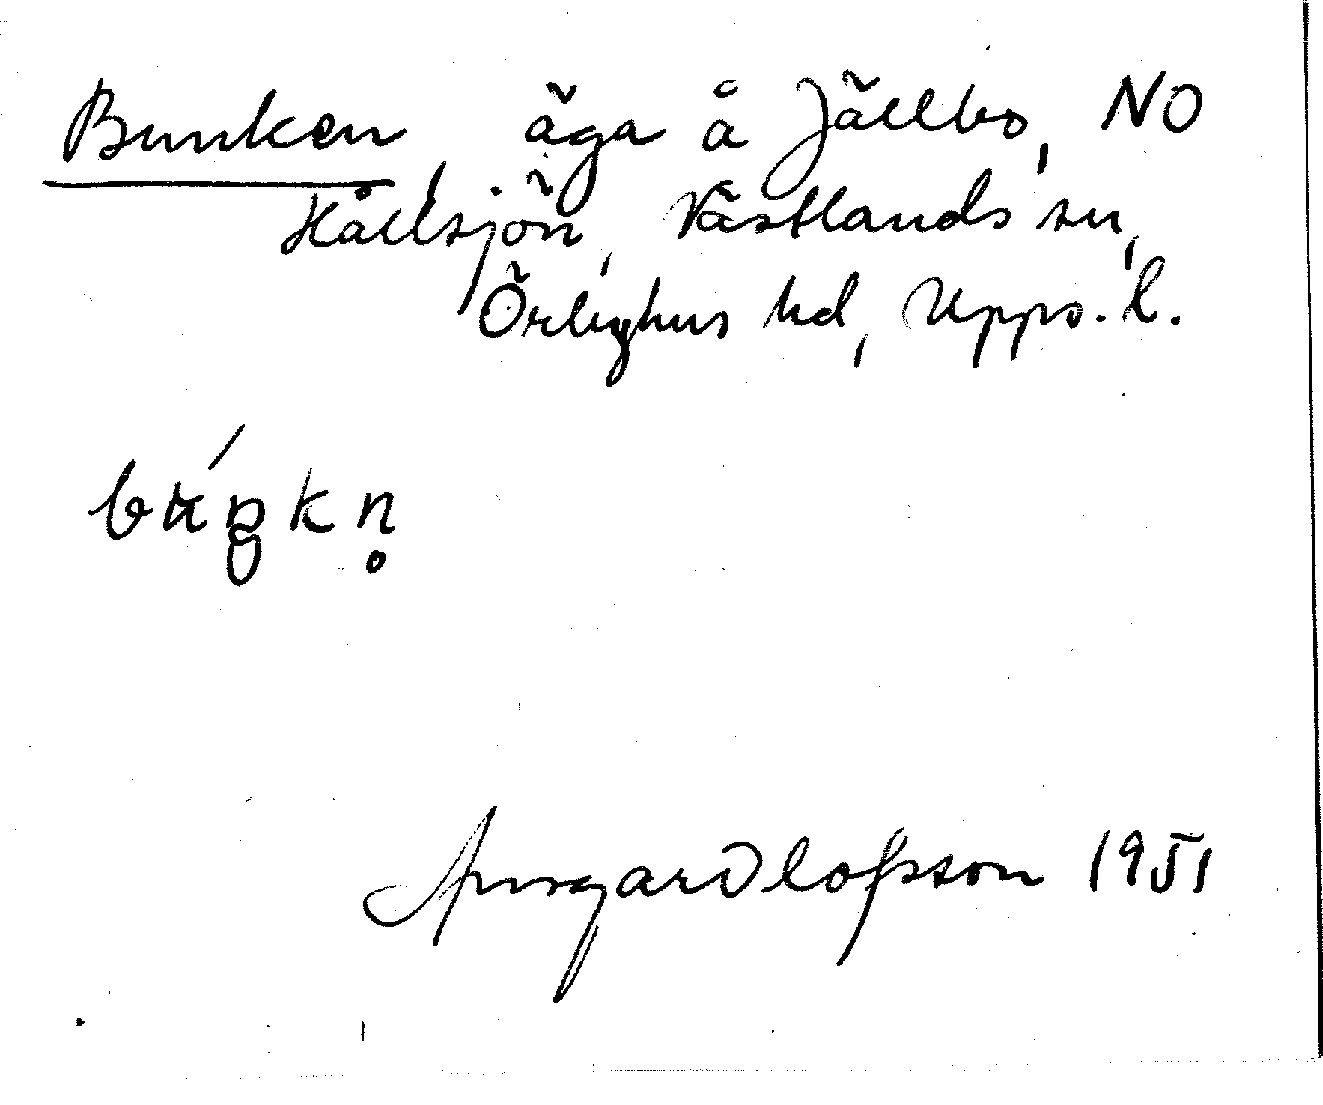 Bunken, äga å Jällbo, NO
Hållsjön, Västlands sn,
Örbyhus hd, Upps. l.
Ingar Olofsson 1951